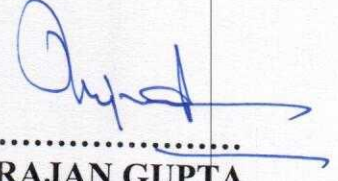 ........................................
RAJAN GUPTA